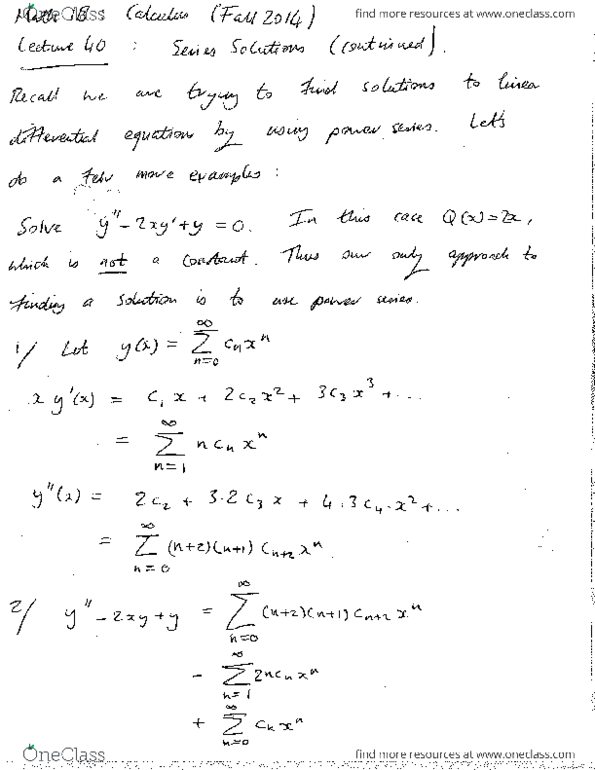 Math 1B Calculus (Fall 2014)
find more resources at www.oneclass.com
Lecture 40 : Series Solutions (continued).
Recall we are trying to find solutions to linear
differential equation by using power series. Let's
do a few more examples :
Solve y'' - 2xy' + y = 0. In this case Q(x) = 2x,
which is not a constant. Thus our only approach to
finding a solution is to use power series.
1/ Let y(x) = ∑_{n=0}^{∞} c_n x^n
x y'(x) = c_1 x + 2c_2 x^2 + 3c_3 x^3 + ...
= ∑_{n=1}^{∞} n c_n x^n
y''(x) = 2c_2 + 3·2 c_3 x + 4·3 c_4 · x^2 + ...
= ∑_{n=0}^{∞} (n+2)(n+1) c_{n+2} x^n
2/ y'' - 2xy + y = ∑_{n=0}^{∞} (n+2)(n+1) c_{n+2} x^n
- ∑_{n=1}^{∞} 2n c_n x^n
+ ∑_{n=0}^{∞} c_n x^n
OneClass
find more resources at www.oneclass.com